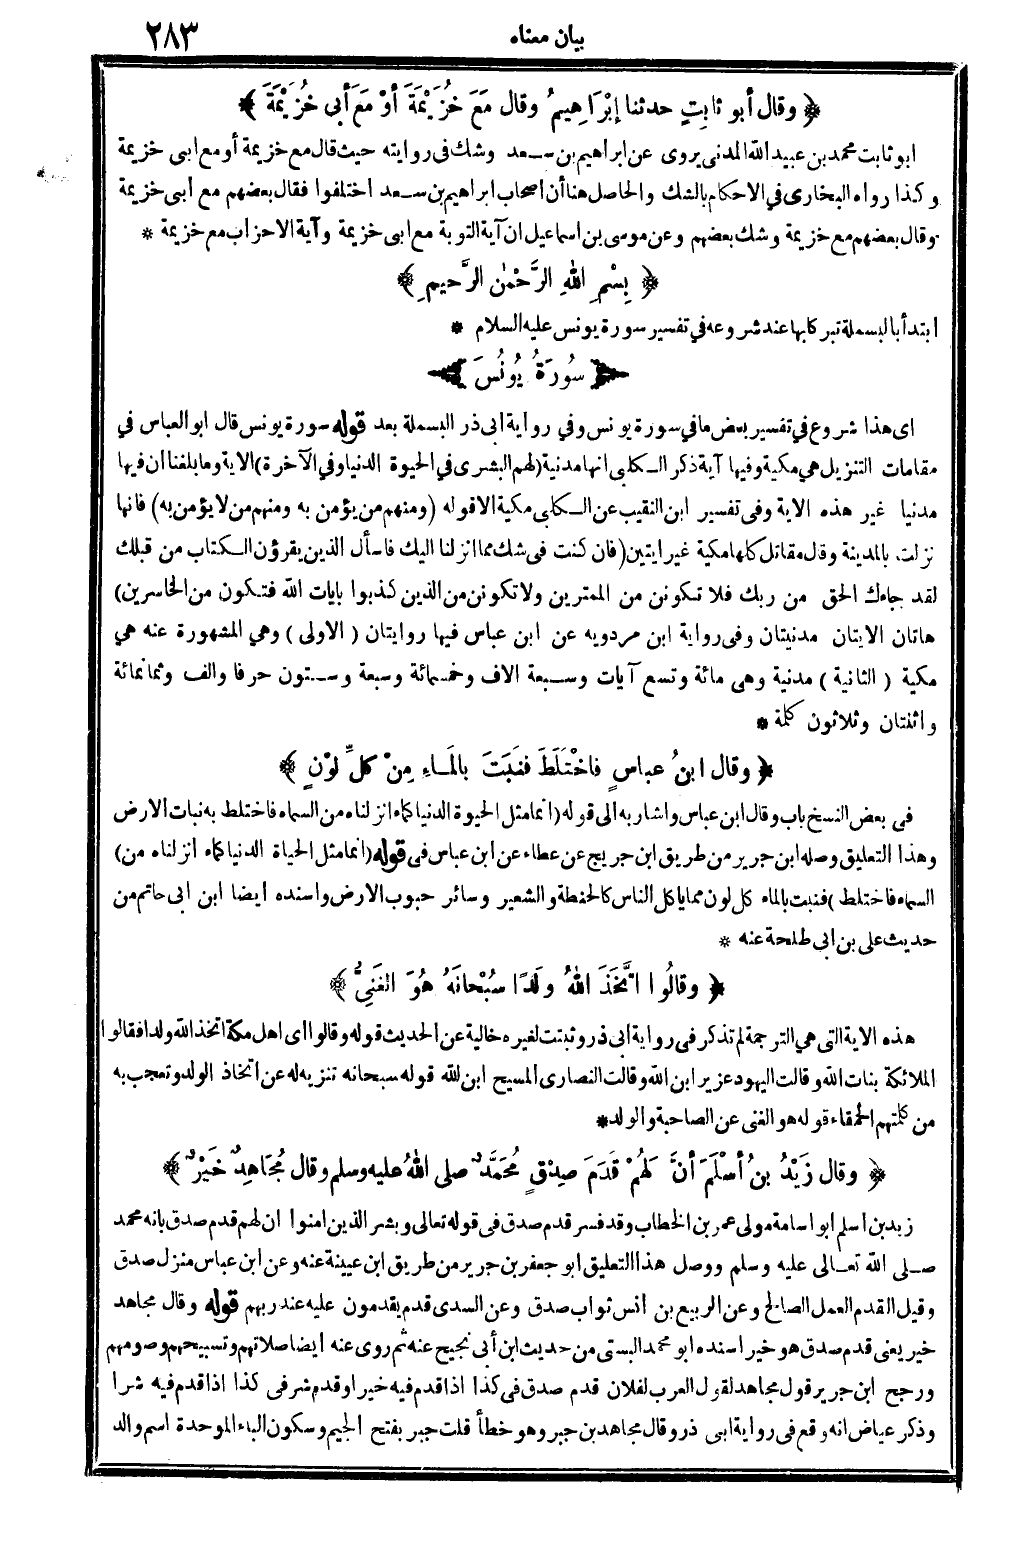 بيان معناه
٢٨٣
﴿ وقال أبو ثابِتٍ حدثنا إبْرَاهِيمُ وقال مَعَ خُزَيْمَةَ أوْ مَعَ أبى خُزَيْمَةَ ﴾
ابو ثابت محمد بن عبيد الله المدنى يروى عن ابراهيم بن سـعد وشك فى روايته حيث قال مع خزيمة أو مع ابى خزيمة
وكذا رواه البخارى في الاحكام بالشك والحاصل هنا أن أصحاب ابراهيم بن سـعد اختلفوا فقال بعضهم مع أبى خزيمة
وقال بعضهم مع خزيمة وشك بعضهم وعن موسى بن اسماعيل ان آية التوبة مع ابى خزيمة وآية الاحزاب مع خزيمة *
﴿ بِسْمِ اللهِ الرَّحْمٰنِ الرَّحِيمِ ﴾
ابتدأ بالبسملة تبركا بها عند شروعه في تفسير سورة يونس عليه السلام *
سُورَةُ يُونُسَ
اى هذا شروع في تفسير بعض ما في سورة يونس وفي رواية ابى ذر البسملة بعد قوله سورة يونس قال ابو العباس في
مقامات التنزيل هي مكية وفيها آية ذكر الـكلبى انها مدنية (لهم البشرى في الحيوة الدنيا وفي الآخرة) الاية وما بلغنا ان فيها
مدنيا غير هذه الاية وفى تفسير ابن النقيب عن الـكلبى مكية الا قوله (ومنهم من يؤمن به ومنهم من لا يؤمن به) فانها
نزلت بالمدينة وقال مقاتل كلها مكية غير ايتين (فان كنت فى شك مما انزلنا اليك فاسأل الذين يقرؤن الـكتاب من قبلك
لقد جاءك الحق من ربك فلا تكونن من الممترين ولا تكونن من الذين كذبوا بايات الله فتكون من الخاسرين)
هاتان الايتان مدنيتان وفى رواية ابن مردويه عن ابن عباس فيها روايتان (الاولى) وهي المشهورة عنه هي
مكية (الثانية) مدنية وهى مائة وتسع آيات وسـبعة الاف وخمسمائة وسبعة وسـتون حرفا والف وثمانمائة
واثنتان وثلاثون كلمة *
﴿ وقال ابنُ عباسٍ فاخْتَلَطَ فنَبَتَ بالمَـاءِ مِنْ كلِّ لوْنٍ ﴾
فى بعض النسخ باب وقال ابن عباس واشار به الى قوله (انما مثل الحيوة الدنيا كماء انزلناه من السماء فاختلط به نبات الارض
وهذا التعليق وصله ابن جرير من طريق ابن جريج عن عطاء عن ابن عباس فى قوله (انما مثل الحياة الدنيا كماء أنزلناه من)
السماء فاختلط) فنبت بالماء كل لون مما ياكل الناس كالحنطة والشعير وسائر حبوب الارض واسنده ايضا ابن ابى حاتم من
حديث على بن ابى طلحة عنه *
﴿ وقالُوا اتَّخَذَ اللهُ ولَدًا سُبْحانَهُ هُوَ الغَنِيُّ ﴾
هذه الاية التى هي الترجمة لم تذكر فى رواية ابى ذر وثبتت لغيره خالية عن الحديث قوله وقالوا اى اهل مكة اتخذ الله ولدا فقالوا
الملائكة بنات الله وقالت اليهود عزير ابن الله وقالت النصارى المسيح ابن لله قوله سبحانه تنزيه له عن اتخاذ الولد وتعجب به
من كلمتهم الحمقاء قوله هو الغنى عن الصاحبة والولد*
﴿ وقال زَيْدُ بنُ أسْلَمَ أنَّ لَهُمْ قَدَمَ صِدْقٍ مُحَمَّدٌ صلى اللهُ عليه وسلم وقال مُجَاهِدٌ خَيْرٌ ﴾
زيد بن اسلم ابو اسامة مولى عمر بن الخطاب وقد فسر قدم صدق فى قوله تعالى وبشر الذين امنوا ان لهم قدم صدق بانه محمد
صـلى الله تعـالى عليه وسلم ووصل هذا التعليق ابو جعفر بن جرير من طريق ابن عيينة عنه وعن ابن عباس منزل صدق
وقيل القدم العمل الصالح وعن الربيع بن انس ثواب صدق وعن السدى قدم يقدمون عليه عند ربهم قوله وقال مجاهد
خير يعنى قدم صدق هو خير اسنده ابو محمد البستى من حديث ابن أبى نجيح عنه ثم روى عنه ايضا صلاتهم وتسبيحهم وصومهم
ورجح ابن جرير قول مجاهد لقول العرب لفلان قدم صدق فى كذا اذا قدم فيه خيرا وقدم شر فى كذا اذا قدم فيه شرا
وذكر عياض انه وقع فى رواية ابى ذر وقال مجاهد بن جبر وهو خطأ قلت جبر بفتح الجيم وسكون الباء الموحدة اسم والد